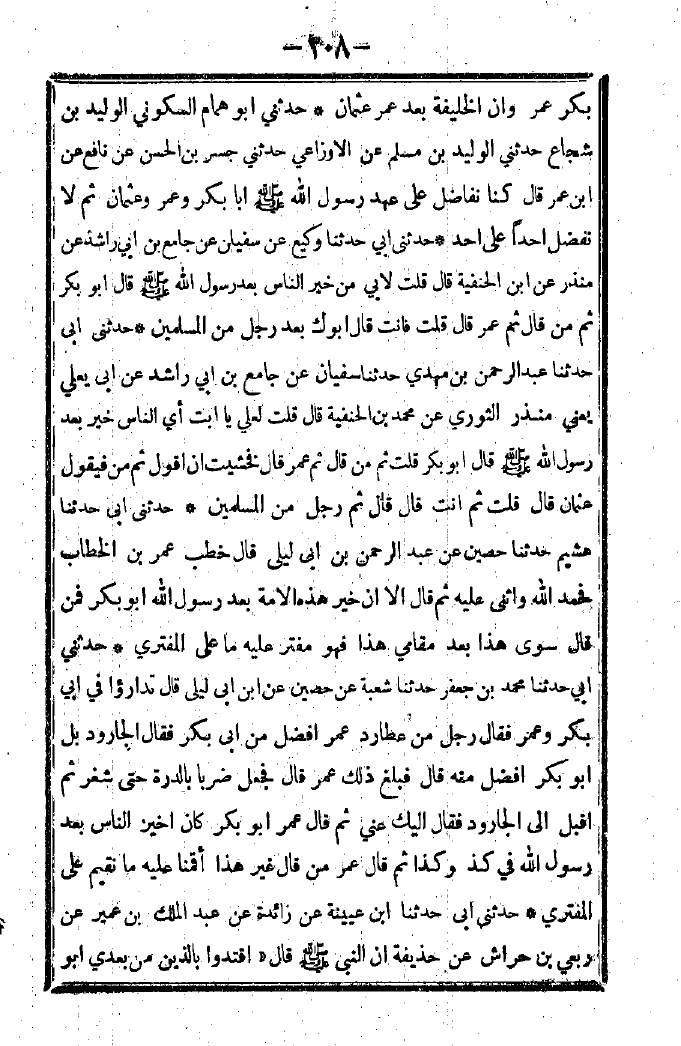 -٣٠٨-
بكر عمر وان الخليفة بعد عمر عثمان * حدثني ابو همام السكوني الوليد بن
شجاع حدثني الوليد بن مسلم عن الاوزاعي حدثني جسر بن الحسن عن نافع عن
ابن عمر قال كنا نفاضل على عهد رسول الله ﷺ ابا بكر وعمر وعثمان ثم لا
تفضل احداً على احد * حدثنى ابي حدثنا وكيع عن سفيان عن جامع بن ابي راشد عن
منذر عن ابن الحنفية قال قلت لابي من خير الناس بعد رسول الله ﷺ قال ابو بكر
ثم من قال ثم عمر قال قلت فانت قال ابوك بعد رجل من المسلمين * حدثنى ابى
حدثنا عبد الرحمن بن مهدي حدثنا سفيان عن جامع بن ابي راشد عن ابى يعلي
يعني منذر الثوري عن محمد بن الحنفية قال قلت لعلي يا ابت أي الناس خير بعد
رسول الله ﷺ قال ابو بكر قلت ثم من قال ثم عمر قال فخشيت ان اقول ثم من فيقول
عثمان قال قلت ثم انت قال قال ثم رجل من المسلمين * حدثنى ابى حدثنا
هشيم حدثنا حصين عن عبد الرحمن بن ابى ليلى قال خطب عمر بن الخطاب
فحمد الله واثنى عليه ثم قال الا ان خير هذه الامة بعد رسول الله ابو بكر فمن
قال سوى هذا بعد مقامي هذا فهو مفتر عليه ما على المفتري * حدثني
ابي حدثنا محمد بن جعفر حدثنا شعبة عن حصين عن ابن ابى ليلى قال تدارؤا في ابي
بكر وعمر فقال رجل من عطارد عمر افضل من ابى بكر فقال الجارود بل
ابو بكر افضل منه قال فبلغ ذلك عمر قال فجعل ضربا بالدرة حتى شغر ثم
اقبل الى الجارود فقال اليك عني ثم قال عمر ابو بكر كان اخير الناس بعد
رسول الله في كذ وكذا ثم قال عمر من قال غير هذا أقمنا عليه ما نقيم على
المفتري * حدثنى ابى حدثنا ابن عيينة عن زائدة عن عبد الملك بن عمير عن
ربعي بن حراش عن حذيفة ان النبى ﷺ قال « اقتدوا بالذين من بعدي ابو